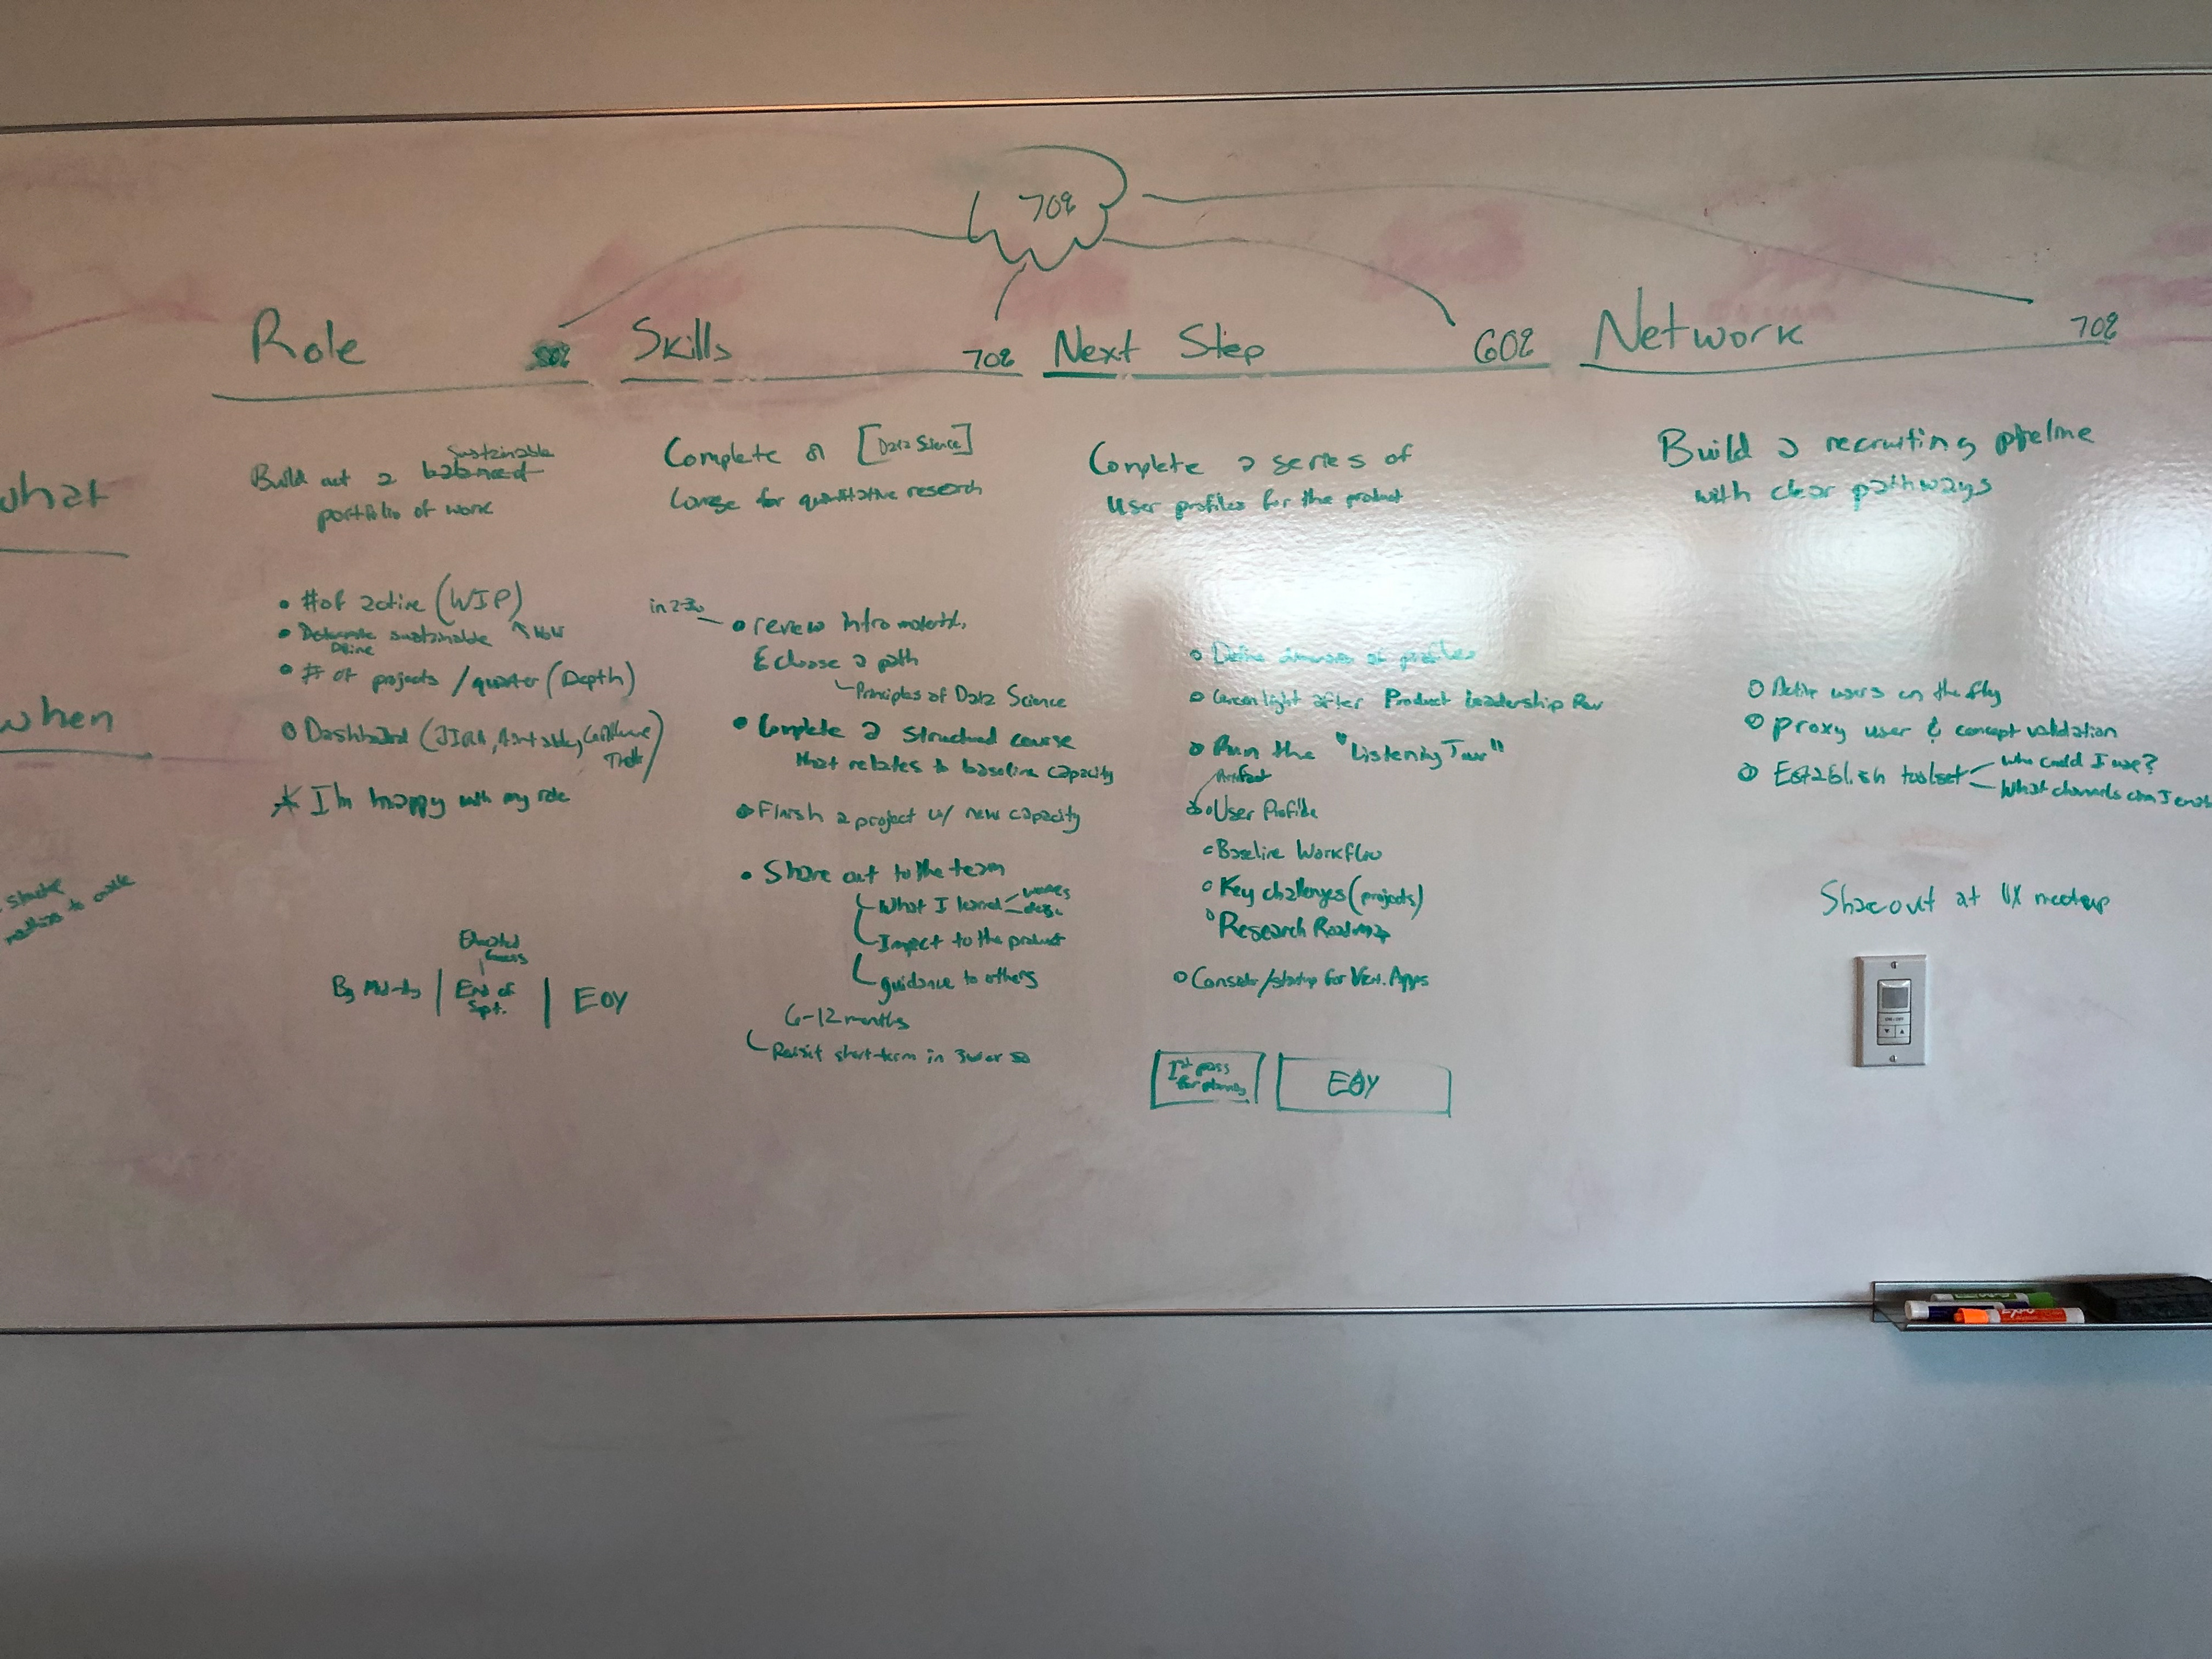 70%
Role
Skills 70%
Next Step 60%
Network 70%
what
sustainable
Build out a balanced
portfolio of work
Complete a [Data Science]
Course for quantitative research
Complete a series of
User profiles for the product
Build a recruiting pipeline
with clear pathways
when
• # of active (WIP)
• sustainable
Define
• # of projects / quarter (Depth)
Dashboard (JIRA, Airtable,
* I'm happy with my role
By | End of Sept. | EOY
in 2-3w
• review intro
& choose a path
Principles of Data Science
• Complete a structured course
that relates to baseline capacity
Finish a project w/ new capacity
• Share out to the team
What I
Impact to the product
guidance to others
6-12 months
Revisit short-term in 3w or so
Define of profiles
Greenlight after Product Leadership
Run the "Listening Tour"
Artifact
User Profile
Baseline Workflow
Key challenges (projects)
Research Roadmap
1st pass
for
EOY
Active users on the fly
proxy user & concept validation
Establish toolset
who could I use?
What channels can I
Shareout at UX meetup
ON • OFF